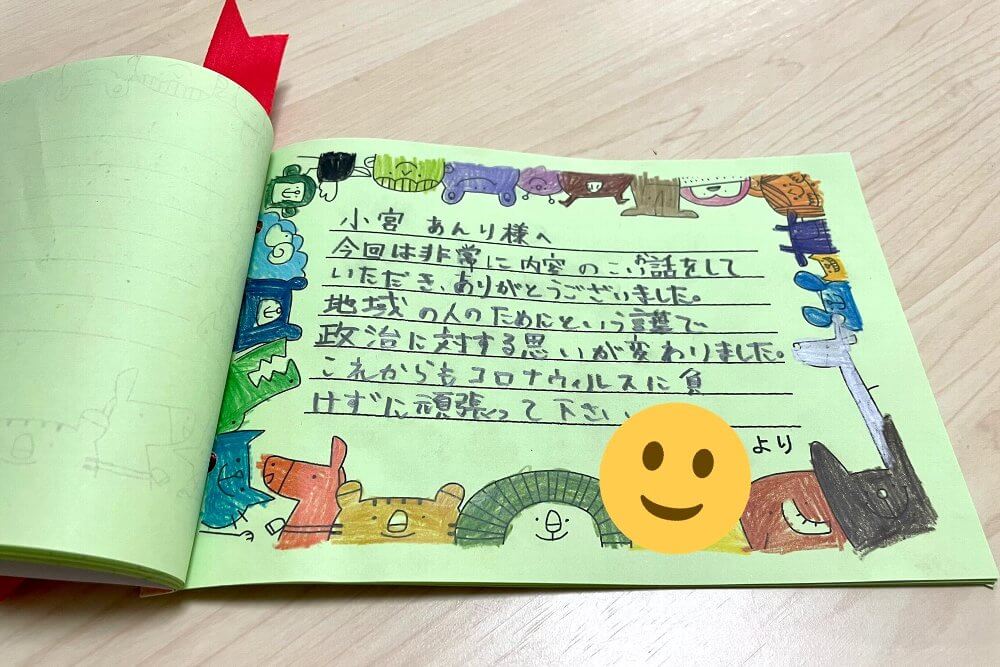 小宮 あんり様へ
今回は非常に内容のこい話をして
いただき、ありがとうございました。
地域の人のためにという言葉で
政治に対する思いが変わりました。
これからもコロナウィルスに負
けずに頑張って下さい
より